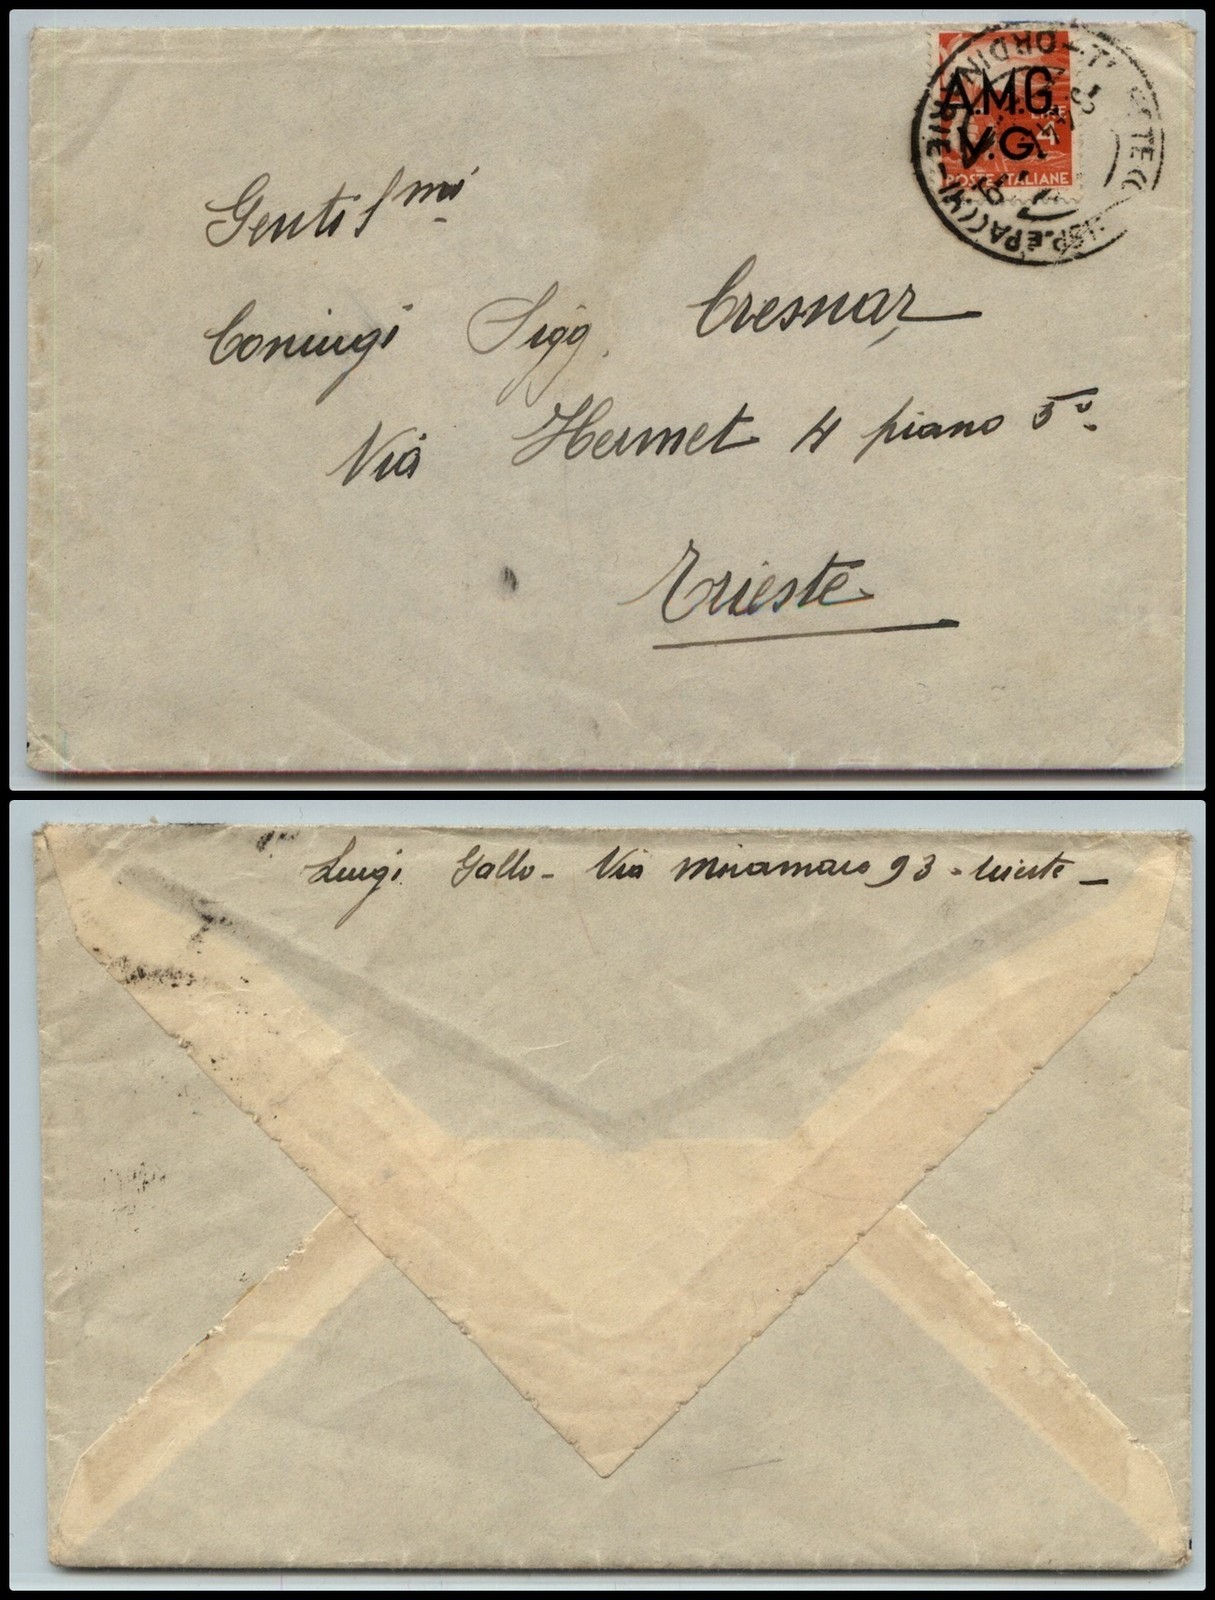 A.M.G.
V.G.
LIRE
4
POSTE ITALIANE
Gentilmi
Coniugi Sigg. Cresnar
Via Hermet 4 piano 5°
Trieste
Luigi Gallo - Via Miramare 93 - Trieste -